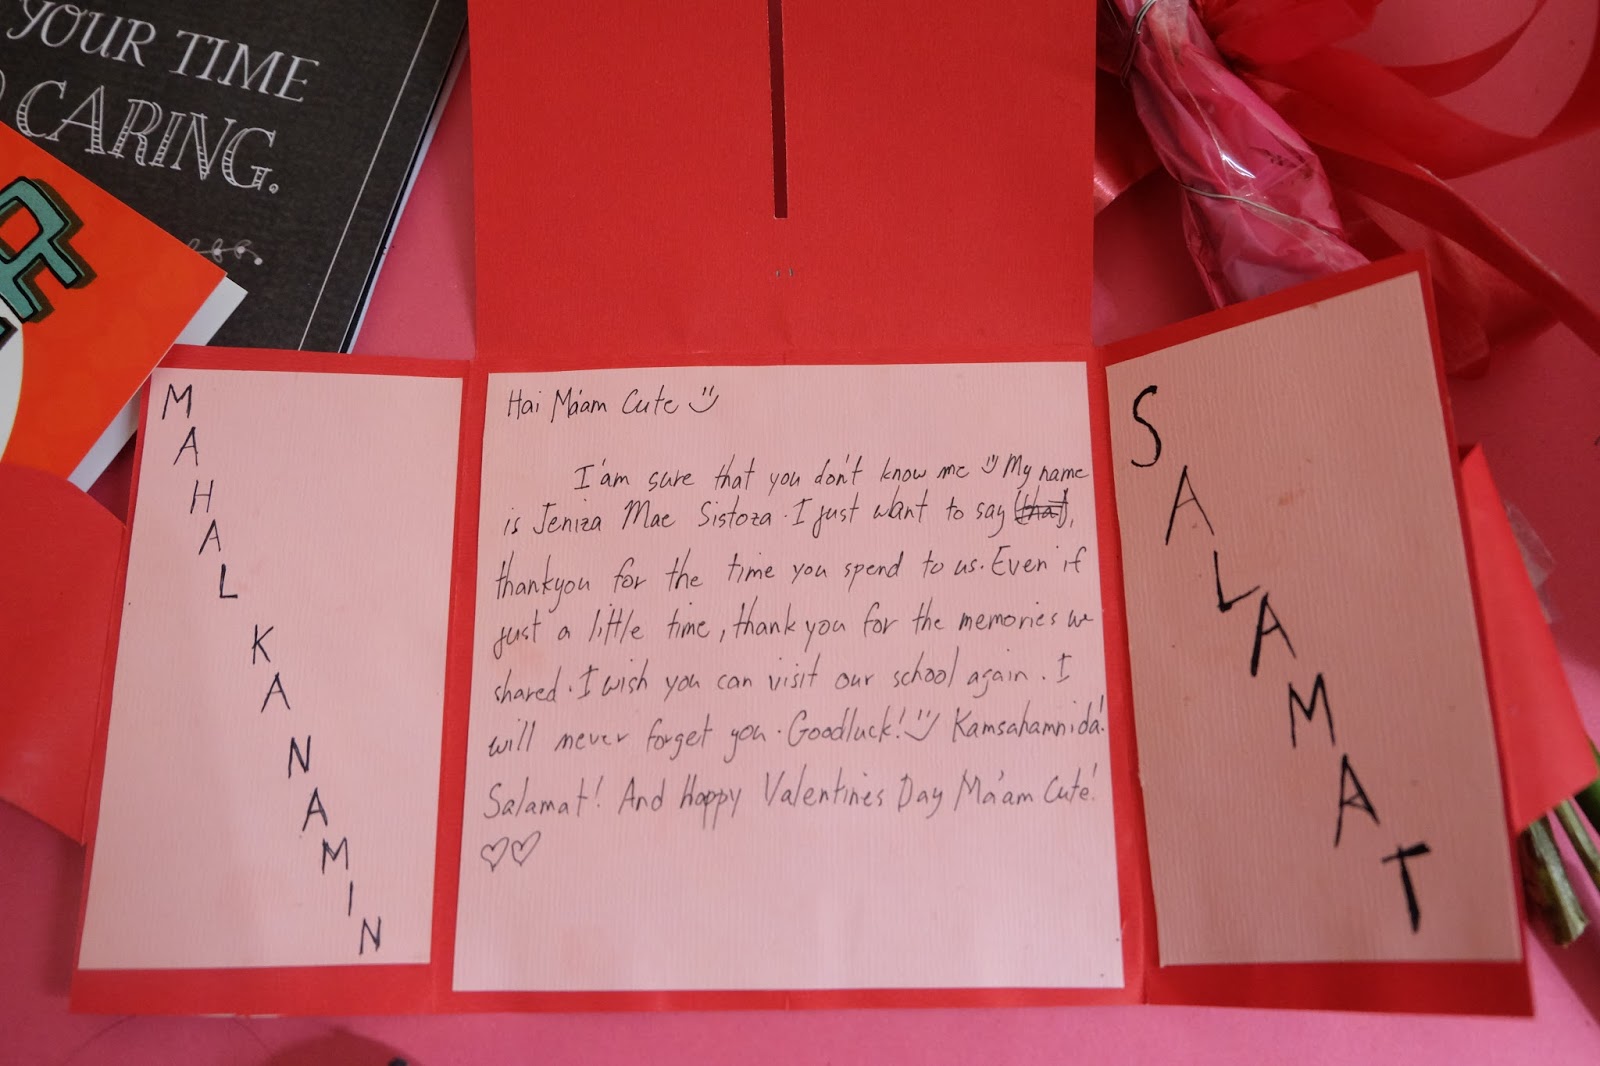 YOUR TIME
CARING.
MAHAL KA NAMIN
Hai Ma'am Cute
I'am sure that you don't know me My name
is Jeniza Mae Sistoza. I just want to say that,
thankyou for the time you spend to us. Even if
just a little time, thank you for the memories we
shared. I wish you can visit our school again. I
will never forget you. Goodluck! Kamsahamnida!
Salamat! And Happy Valentines Day Ma'am Cute!
SALAMAT